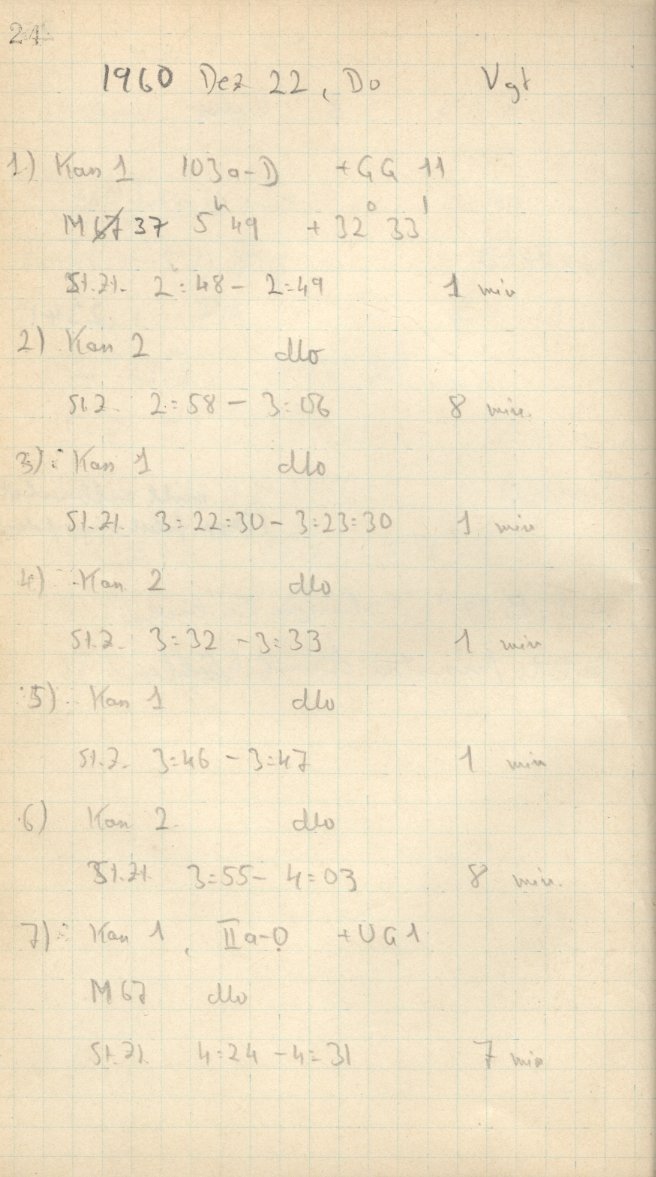 24
1960 Dez 22, Do Vgt
1) Kas 1 103a-D +GG 11
M 67 37 5h 49 +32° 33'
St.Zt. 2:48 - 2:49 1 min
2) Kas 2 dto
St.Z. 2:58 - 3:06 8 min.
3) Kas 1 dto
St.Zt. 3:22:30 - 3:23:30 1 min
4) Kas 2 dto
St.Z. 3:32 - 3:33 1 min
5) Kas 1 dto
St.Z. 3:46 - 3:47 1 min
6) Kas 2. dto
St.Zt. 3:55 - 4:03 8 min.
7) Kas 1, IIa-O +UG1
M 67 dto
St.Zt. 4:24 - 4:31 7 min